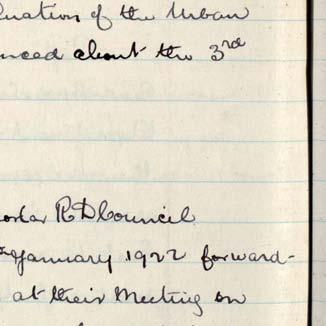 of the Urban
about the 3rd
R D Council
January 1922 forward-
at their Meeting on